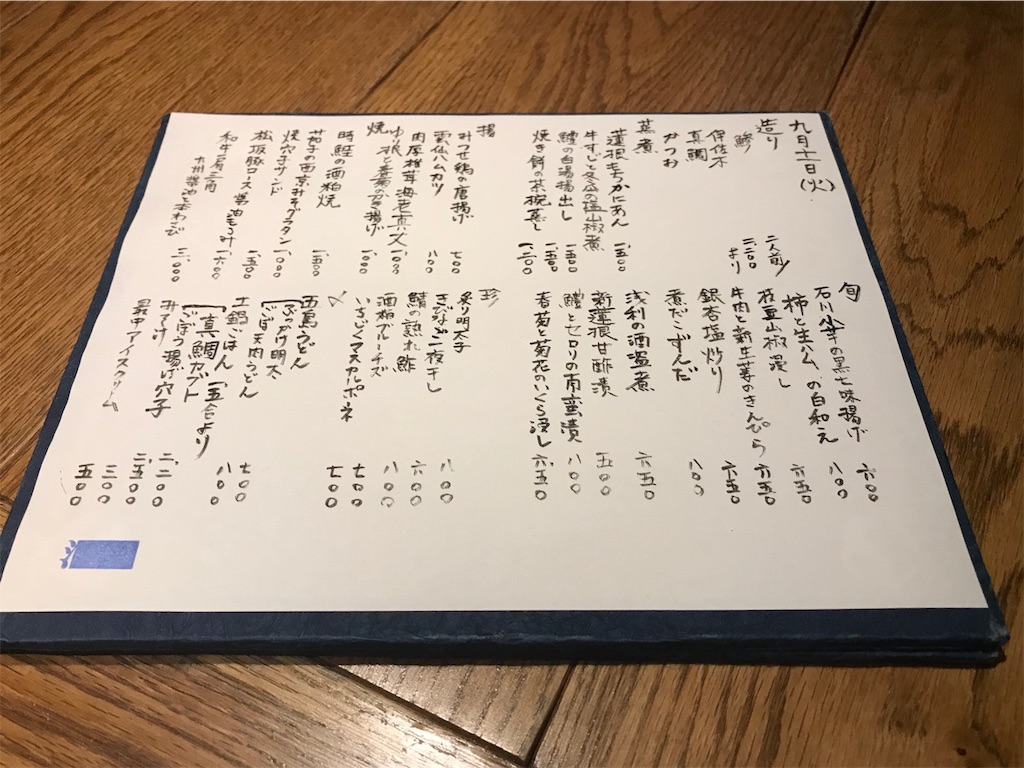 九月十一日(火)
造り 二人前 二.二〇〇より
鯵
伊佐木
真鯛
かつお
蒸煮
蓮根もちかにあん 一.五〇〇
牛すじと冬瓜の塩山椒煮
鱧の白湯揚出し 一.五〇〇
焼き餅の茶椀蒸し 一.二〇〇
揚
みつせ鶏の唐揚げ 七〇〇
雲仙ハムカツ 八〇〇
肉厚椎茸海老真丈
ゆり根と春菊のかき揚げ 一.〇〇〇
焼
時鮭の酒粕焼
茄子の西京みそグラタン
焼穴子サンド 一.〇〇〇
松坂豚ロース醤油もろみ 一.五〇〇
和牛三角 一.六〇〇
九州醤油と本わさび 二.〇〇〇
旬
石川小芋の黒七味揚げ 六〇〇
柿と生ハムの白和え 八〇〇
枝豆山椒浸し 六五〇
牛肉と新生姜のきんぴら 六五〇
銀杏塩炒り 六五〇
煮だこずんだ 八〇〇
浅利の酒盗煮 六五〇
新蓮根甘酢漬 五〇〇
鱧とセロリの南蛮漬 八〇〇
春菊と菊花のいくら浸し 六.五〇
珍
炙り明太子 八〇〇
きびなご一夜干し 六〇〇
鯖の熟れ鮓 八〇〇
酒粕ブルーチーズ 七〇〇
いちじくマスカルポーネ 七〇〇
〆
五島うどん
ぶっかけ明太 七〇〇
ごぼ天肉うどん 八〇〇
土鍋ごはん 一.五合より
真鯛カブト 二.二〇〇
ごぼう揚げ穴子 二.五〇〇
みそ汁 三〇〇
最中アイスクリーム 五〇〇